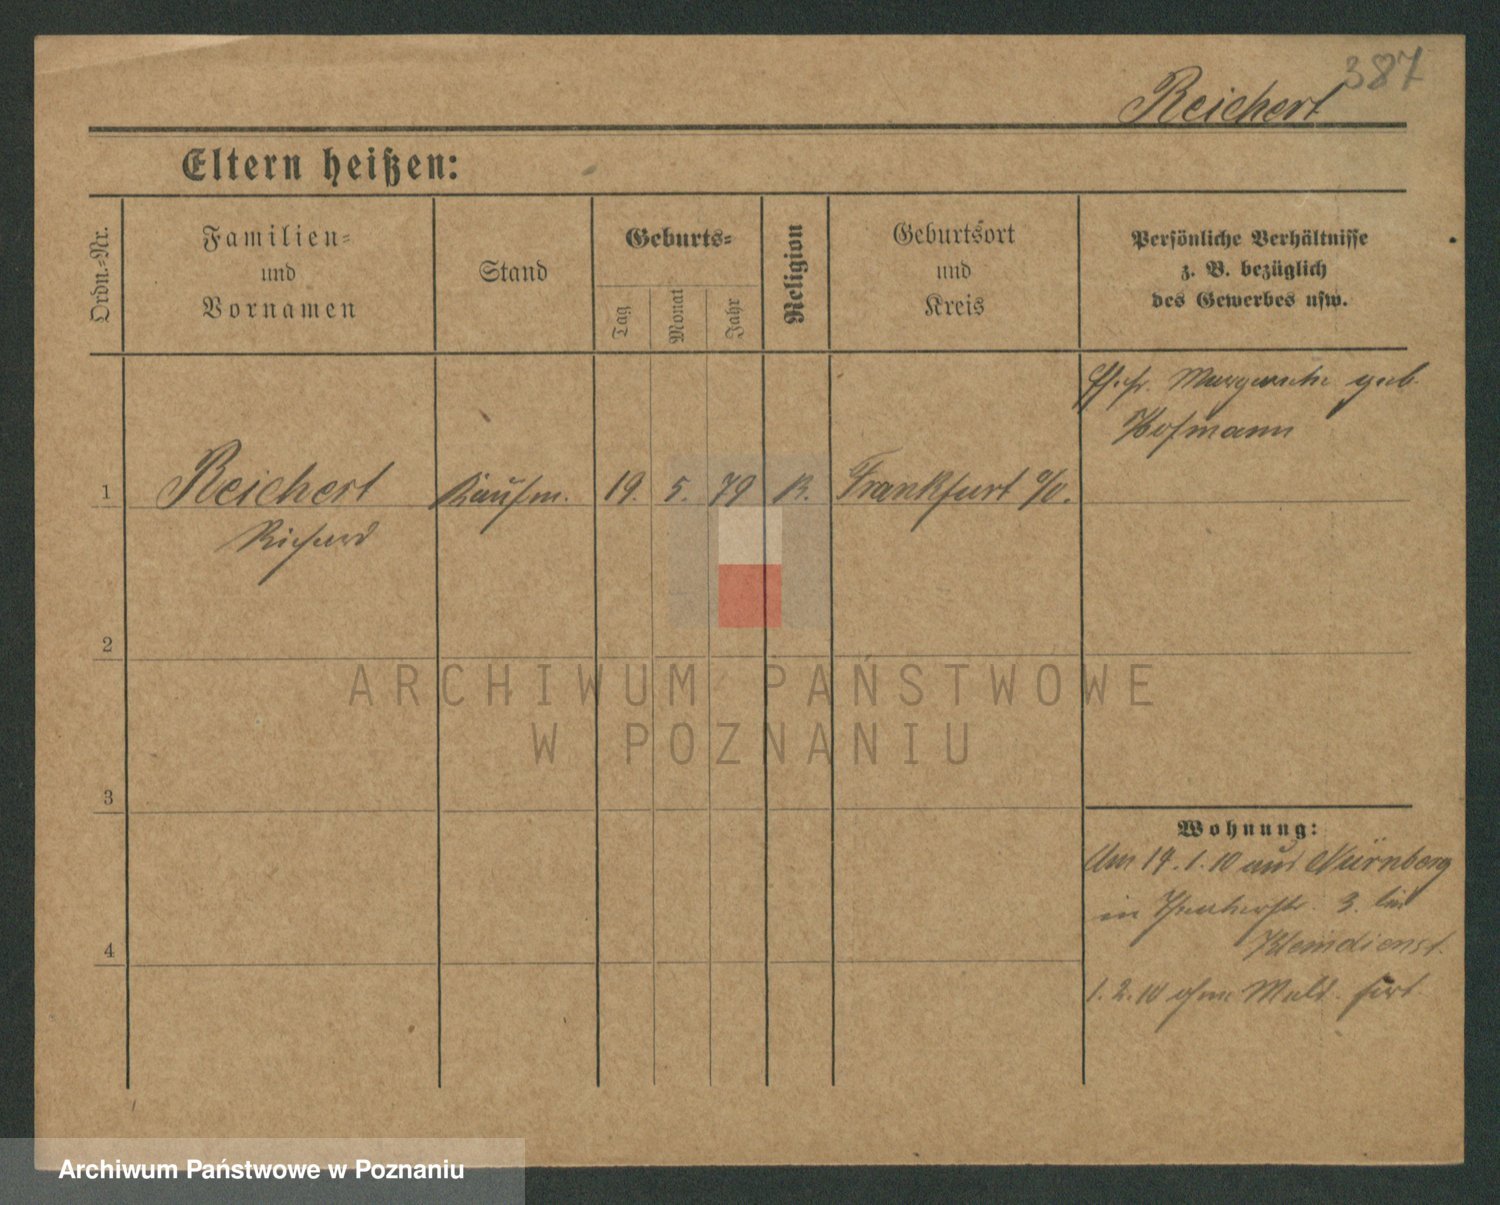 387
Reichert
Eltern heißen:
Ordn.-Nr.
Familien-
und
Vornamen
Stand
Geburts-
Tag
Monat
Jahr
Religion
Geburtsort
und
Kreis
Persönliche Verhältnisse
z. B. bezüglich
des Gewerbes usw.
Ehefr. Margarethe geb.
Hofmann
1
Reichert
Kaufm.
19.
5.
79
K.
Frankfurt a/O.
Richard
2
ARCHIWUM PAŃSTWOWE
W POZNANIU
3
Wohnung:
Am 14.1.10 aus Nürnberg
in 3. bei
Kleindienst.
4
1.2.10 ohne Meld. fort.
Archiwum Państwowe w Poznaniu